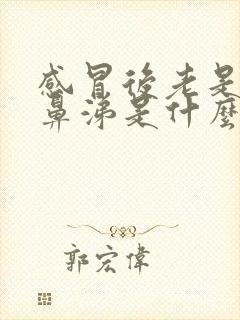 感冒後老是
鼻涕是什麼
郭宏偉